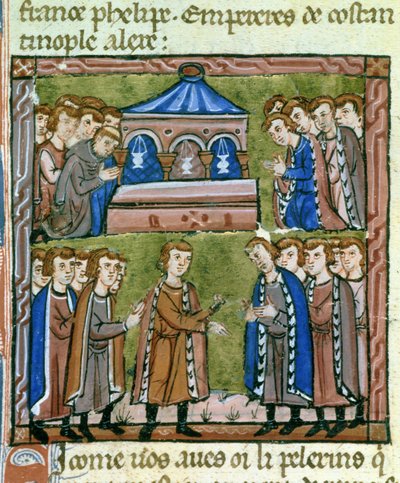 france phelipe. Empereres de costan
tinople alexe:
Si come uos aues oi li pelerins q